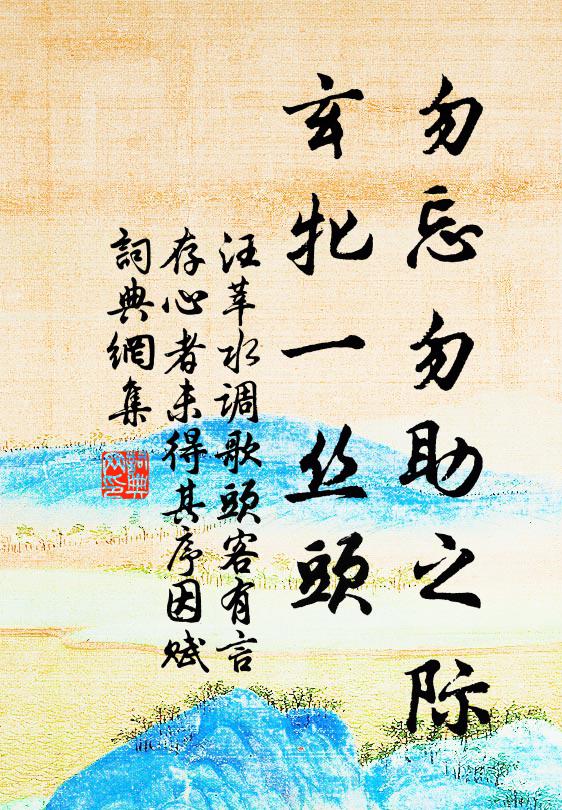 勿忘勿助之际
玄牝一丝頭
汪莘水调歌頭客有言
存心者未得其序因赋
詞典網集
詞典